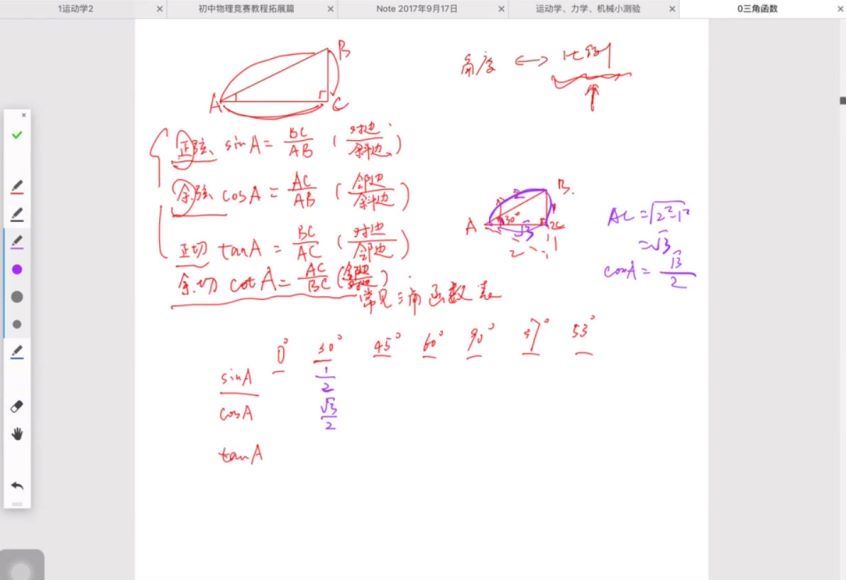 1运动学2
初中物理竞赛教程拓展篇
Note 2017年9月17日
运动学、力学、机械小测验
0三角函数
B
A
C
角度 ↔ 比例
正弦 sinA = BC/AB (对边/斜边)
余弦 cosA = AC/AB (邻边/斜边)
正切 tanA = BC/AC (对边/邻边)
余切 cotA = AC/BC
常见三角函数表
2
B
1
A
30°
√3
C
2
1
AC = √2²-1²
= √3
cosA = √3/2
0° 30° 45° 60° 90° 37° 53°
sinA 1/2
cosA √3/2
tanA